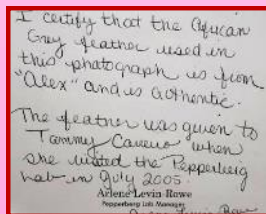 I certify that the African
Grey feather used in
this photograph is from
"Alex" and is authentic.
The feather was given to
Tammy when
she visited the Pepperberg
Lab in July 2005.
Arlene Levin-Rowe
Pepperberg Lab Manager